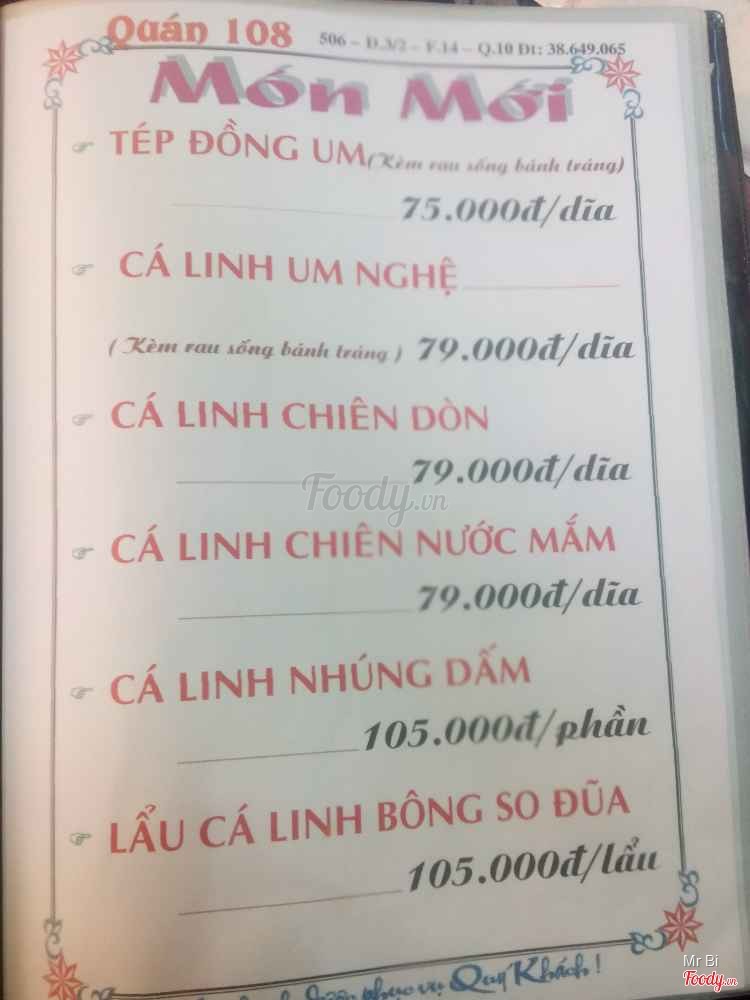 Quán 108 506 - Đ.3/2 - F.14 - Q.10 Đt: 38.649.065
Món Mới
☞ TÉP ĐỒNG UM (Kèm rau sống bánh tráng)
75.000đ/dĩa
☞ CÁ LINH UM NGHỆ
( Kèm rau sống bánh tráng ) 79.000đ/dĩa
☞ CÁ LINH CHIÊN DÒN
79.000đ/dĩa
Foody.vn
☞ CÁ LINH CHIÊN NƯỚC MẮM
79.000đ/dĩa
☞ CÁ LINH NHÚNG DẤM
105.000đ/phần
☞ LẨU CÁ LINH BÔNG SO ĐŨA
105.000đ/lẩu
phục vụ Quý Khách !
Mr Bi
Foody.vn